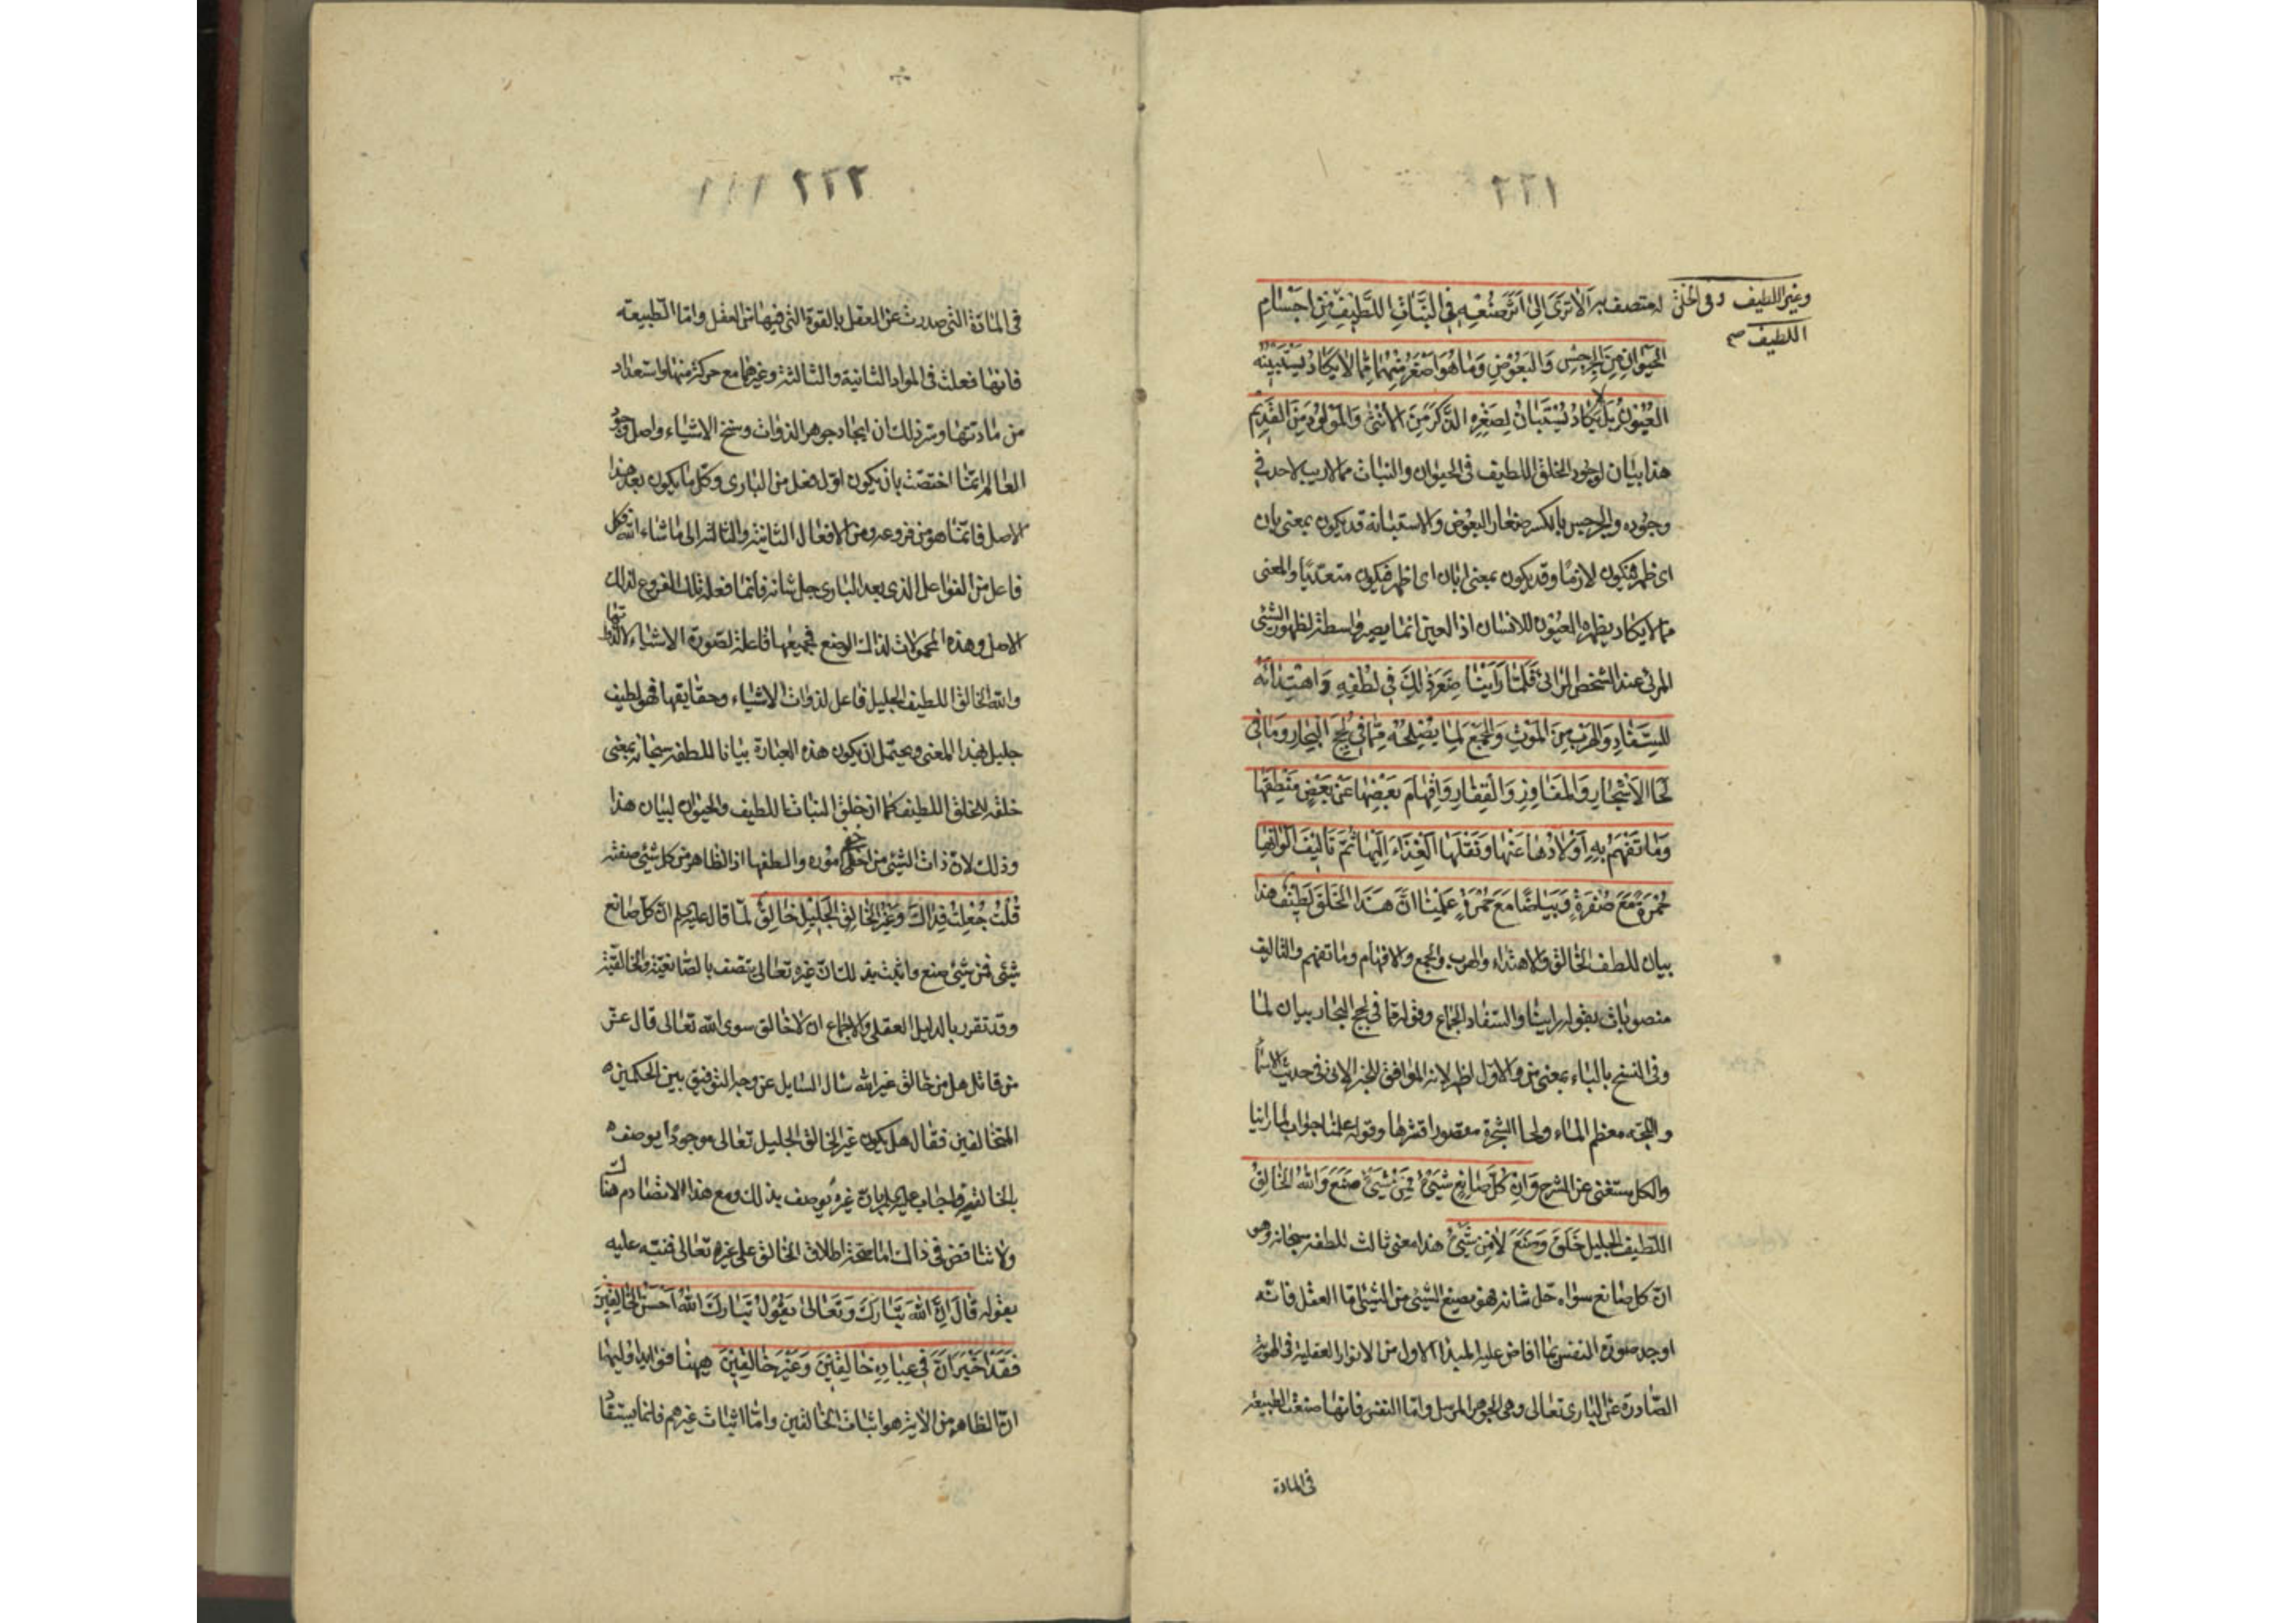 ٢٢١
وغير اللطيف وفى الخلق
اللطيف صح
له متصف به اَلا تَرَى اِلىٰ اَثَرِ صُنْعِهِ فِى النَّباتِ اللَّطِيفِ مِنْ اَجْسامِ
الحَيَوانِ مِنَ الْجِرْجِسِ وَالْبَعُوضِ وَمٰا هُوَ اَصْغَرُ مِنْهُمٰا مِمّٰا لاٰ يَكٰادُ يَسْتَبِينُهُ
العُيُونُ بَلْ لا يَكادُ يُسْتَبٰانُ لِصِغَرِهِ الذَّكَرُ مِنَ الاُنْثىٰ وَالْمَوْلُودُ مِنَ القَدِيمِ
هذا بيان لوجود الخلق اللطيف فى الحيوان والنبات مما لاريب لاحد فى
وجوده والجرجس بالكسر صغار البعوض والاستبانة قد يكون بمعنى بان
اى ظهر فيكون لازمًا وقد يكون بمعنى ابان اى اظهر فيكون متعدّيًا والمعنى
ممّا لا يكاد يظهره العيون للانسان اذ العين انما يصير واسطة لظهور الشئ
المرئى عند الشخص الرائى فَلَمّٰا رَاَيْنٰا صِغَرَ ذٰلِكَ فِى لُطْفِهِ وَاهْتِدٰائَهُ
لِلسِّفٰادِ وَالْهَرَبَ مِنَ الْمَوْتِ وَالْجَمْعَ لِمٰا يُصْلِحُهُ مِمّٰا فِى لُجَجِ الْبِحٰارِ وَمٰا فِى
لَحٰا الاَشْجٰارِ وَالْمَفٰاوِزِ وَالْقِفٰارِ وَاِفْهٰامَ بَعْضِهٰا عَنْ بَعْضٍ مَنْطِقَهٰا
وَمٰا تَفْهَمُ بِهِ اَوْلاٰدُهٰا عَنْهٰا وَنَقْلَهَا الْغِذٰاءَ اِلَيْهٰا ثُمَّ تَاْلِيفَ اَلْوٰانِهٰا
حُمْرَةً مَعَ صُفْرَةٍ وَبَيٰاضًا مَعَ حُمْرَةٍ عَلِمْنٰا اَنَّ هٰذَا الْخَلْقِ لَطِيفٌ هذا
بيان للطف الخالق والاهتداء والهرب والجمع والافهام وما تفهم والتاليف
منصوبات بقوله راينا والسفاد الجماع وقوله مما فى لجج البحار بيان لما
وفى النسخ بالباء بمعنى من والاول اظهر لانه الموافق للخبر الاتى فى حديث الاسمآء
واللجّة معظم الماء ولحا الشجرة مقصورا قشرها وقوله علمنا جواب لما راينا
والكل مستغنى عن الشرح وَاِنَّ كُلَّ صٰانِعِ شَيْئٍ فَمِنْ شَيْئٍ صَنَعَ وَاللهُ الْخٰالِقُ
اللَّطِيفُ الْجَلِيلُ خَلَقَ وَصَنَعَ لاٰ مِنْ شَيْئٍ هذا معنى ثالث للطفه سبحانه وهو
انّ كل صانع سواه جل شانه فهو يصنع الشيئ من الشيئ امّا العقل فانّه
اوجد صورة النفس بما افاض عليه المبدأ الاول من الانوار العقلية فى الهوية
الصّادرة عن البارى تعالى وهى الجوهر المرسل وامّا النفس فانها صنعت الطبيعة
فى المادة
٢٢٢
فى المادة التى صدرت عن العقل بالقوة التى فيها من العقل وامّا الطّبيعة
فانها فعلت فى المواد الثانية والثالثة وغيرهما مع حركة منها واستعداد
من مادتها وسرّ ذلك ان ايجاد جوهر الذوات وسنخ الاشياء واصل وجود
العالم انّما اختصّت بان يكون اوّل فعل من البارى وكلّ ما يكون بعد هذا
الاصل فانّما هو من فروعه ومن الافعال الثانية والثالثة الى ما شاء الله فكل
فاعل من الفواعل الذى بعد البارى جل شانه فانما فعله تلك الفروع لذلك
الاصل وهذه المحمولات لذلك الوضع فجميعها فاعلة لصورة الاشياء لا لذواتها
والله الخالق اللطيف الجليل فاعل لذوات الاشياء وحقايقها فهو لطيف
جليل بهذا المعنى ويحتمل ان يكون هذه العبارة بيانا للطفه سبحانه بمعنى
خلقه للخلق اللطيف كما ان خلق النبات اللطيف والحيوان لبيان هذا
وذلك لانّ ذات الشئ من اخفى اموره والطفها اذ الظاهر من كل شئ صفته
قُلْتُ جُعِلْتُ فِدٰاكَ وَغَيْرُ الْخٰالِقِ الْجَلِيلِ خٰالِقٌ لمّا قال عليه السلم انّ كلّ صانع
شيئى فمن شيئ صنع واثبت بذلك انّ غيره تعالى يتصف بالصّانعيّة والخالقيّة
وقد تقرر بالدليل العقلى والاجماع ان لا خالق سوى الله تعالى قال عزّ
من قائل هل من خالق غير الله سال السايل عن وجه التوفيق بين الحكمين
المتخالفين فقال هل يكون غير الخالق الجليل تعالى موجودًا يوصف
بالخالقية واجاب عليه السلم بان غيره يوصف بذلك ومع هذا لا تضادّ هناك
ولا تناقض فى ذلك امّا صحّة اطلاق الخالق على غيره تعالى فنبّه عليه
بقوله قٰالَ اِنَّ اللهَ تَبٰارَكَ وَتَعٰالىٰ يَقُولُ تَبٰارَكَ اللهُ اَحْسَنُ الْخٰالِقِينَ
فَقَدْ اَخْبَرَ اَنَّ فِى عِبٰادِهِ خٰالِقِينَ وَغَيْرَ خٰالِقِينَ ههنا فوايد اوليها
انّ الظاهر من الاية هو اثبات الخالقين وامّا اثبات غيرهم فانما يستفاد